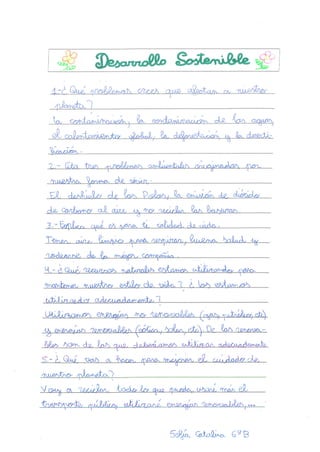 Desarrollo Sostenible
1-¿Qué problemas crees que afectan a nuestro
planeta?
La contaminación, la contaminación de las aguas,
el calentamiento global, la deforestación y la deserti-
ficación.
2.- Cita tres problemas ambientales originados por
nuestra forma de vivir.
El deshielo de los Polos, la emisión de dióxido
de carbono al aire y no reciclar las basuras.
3.- Explica qué es para ti calidad de vida.
Tener aire limpio para respirar, buena salud y
rodearse de la mejor compañía.
4.- ¿Qué recursos naturales estamos utilizando para
mantener nuestro estilo de vida? ¿Los estamos
utilizando adecuadamente?
Utilizamos energías no renovables (gas, petróleo, etc)
y energías renovables (eólica, solar, etc). De las renova-
bles son de las que deberíamos utilizar adecuadamente
5-¿Qué vas a hacer para mejorar el cuidado de
nuestro planeta?
Voy a reciclar todo lo que pueda, usaré más el
transporte público, utilizaré energías renovables,...
Sofía Catalina 6ºB